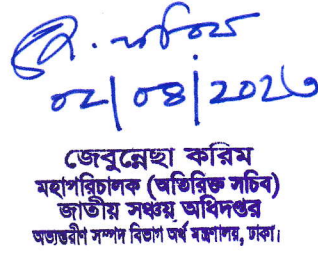 ০২/০৪/২০২৩
জেবুন্নেছা করিম
মহাপরিচালক (অতিরিক্ত সচিব)
জাতীয় সঞ্চয় অধিদপ্তর
অভ্যন্তরীণ সম্পদ বিভাগ অর্থ মন্ত্রণালয়, ঢাকা।